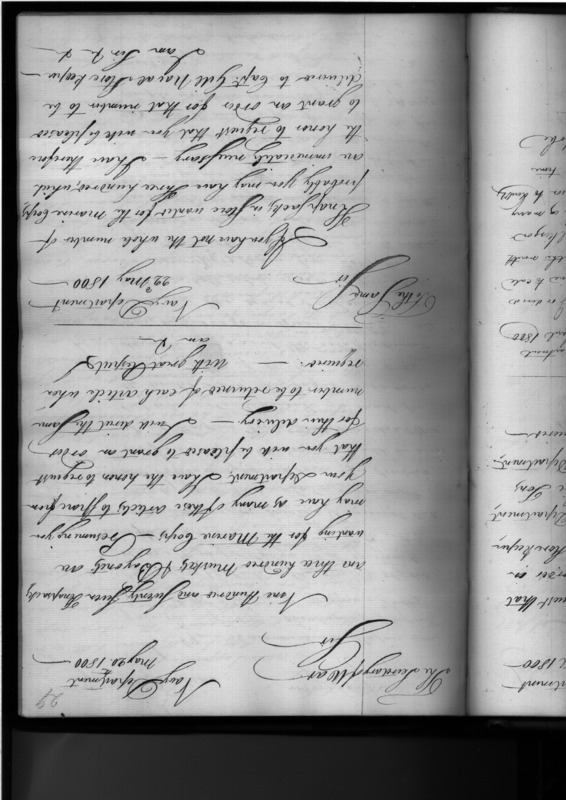 29
Navy Department
May 20th 1800
The Secretary of War
Sir
Nine Hundred and Seventy Seven Knapsacks
and three hundred Muskets & Bayonets are
wanting for the Marine Corps — Presuming you
may have as many of those articles to spare from
your Department, I have the honor to request
that you will be pleased to grant an order
for their delivery — I will direct the same
number to be returned of each article when
required. — With great respect
am &c
Navy Department
22d May 1800
To the Same
Sir
If you have not the whole number of
Knapsacks in store wanted for the Marine Corps,
probably you may have Three hundred, which
are immediately necessary — I have therefore
the honor to request that you will be pleased
to grant an order for that number to be
delivered to Capt. Gill Naval Store keeper —
I am Sir &c &
1800
that
Store keeper,
Department,
Department,
1800
many